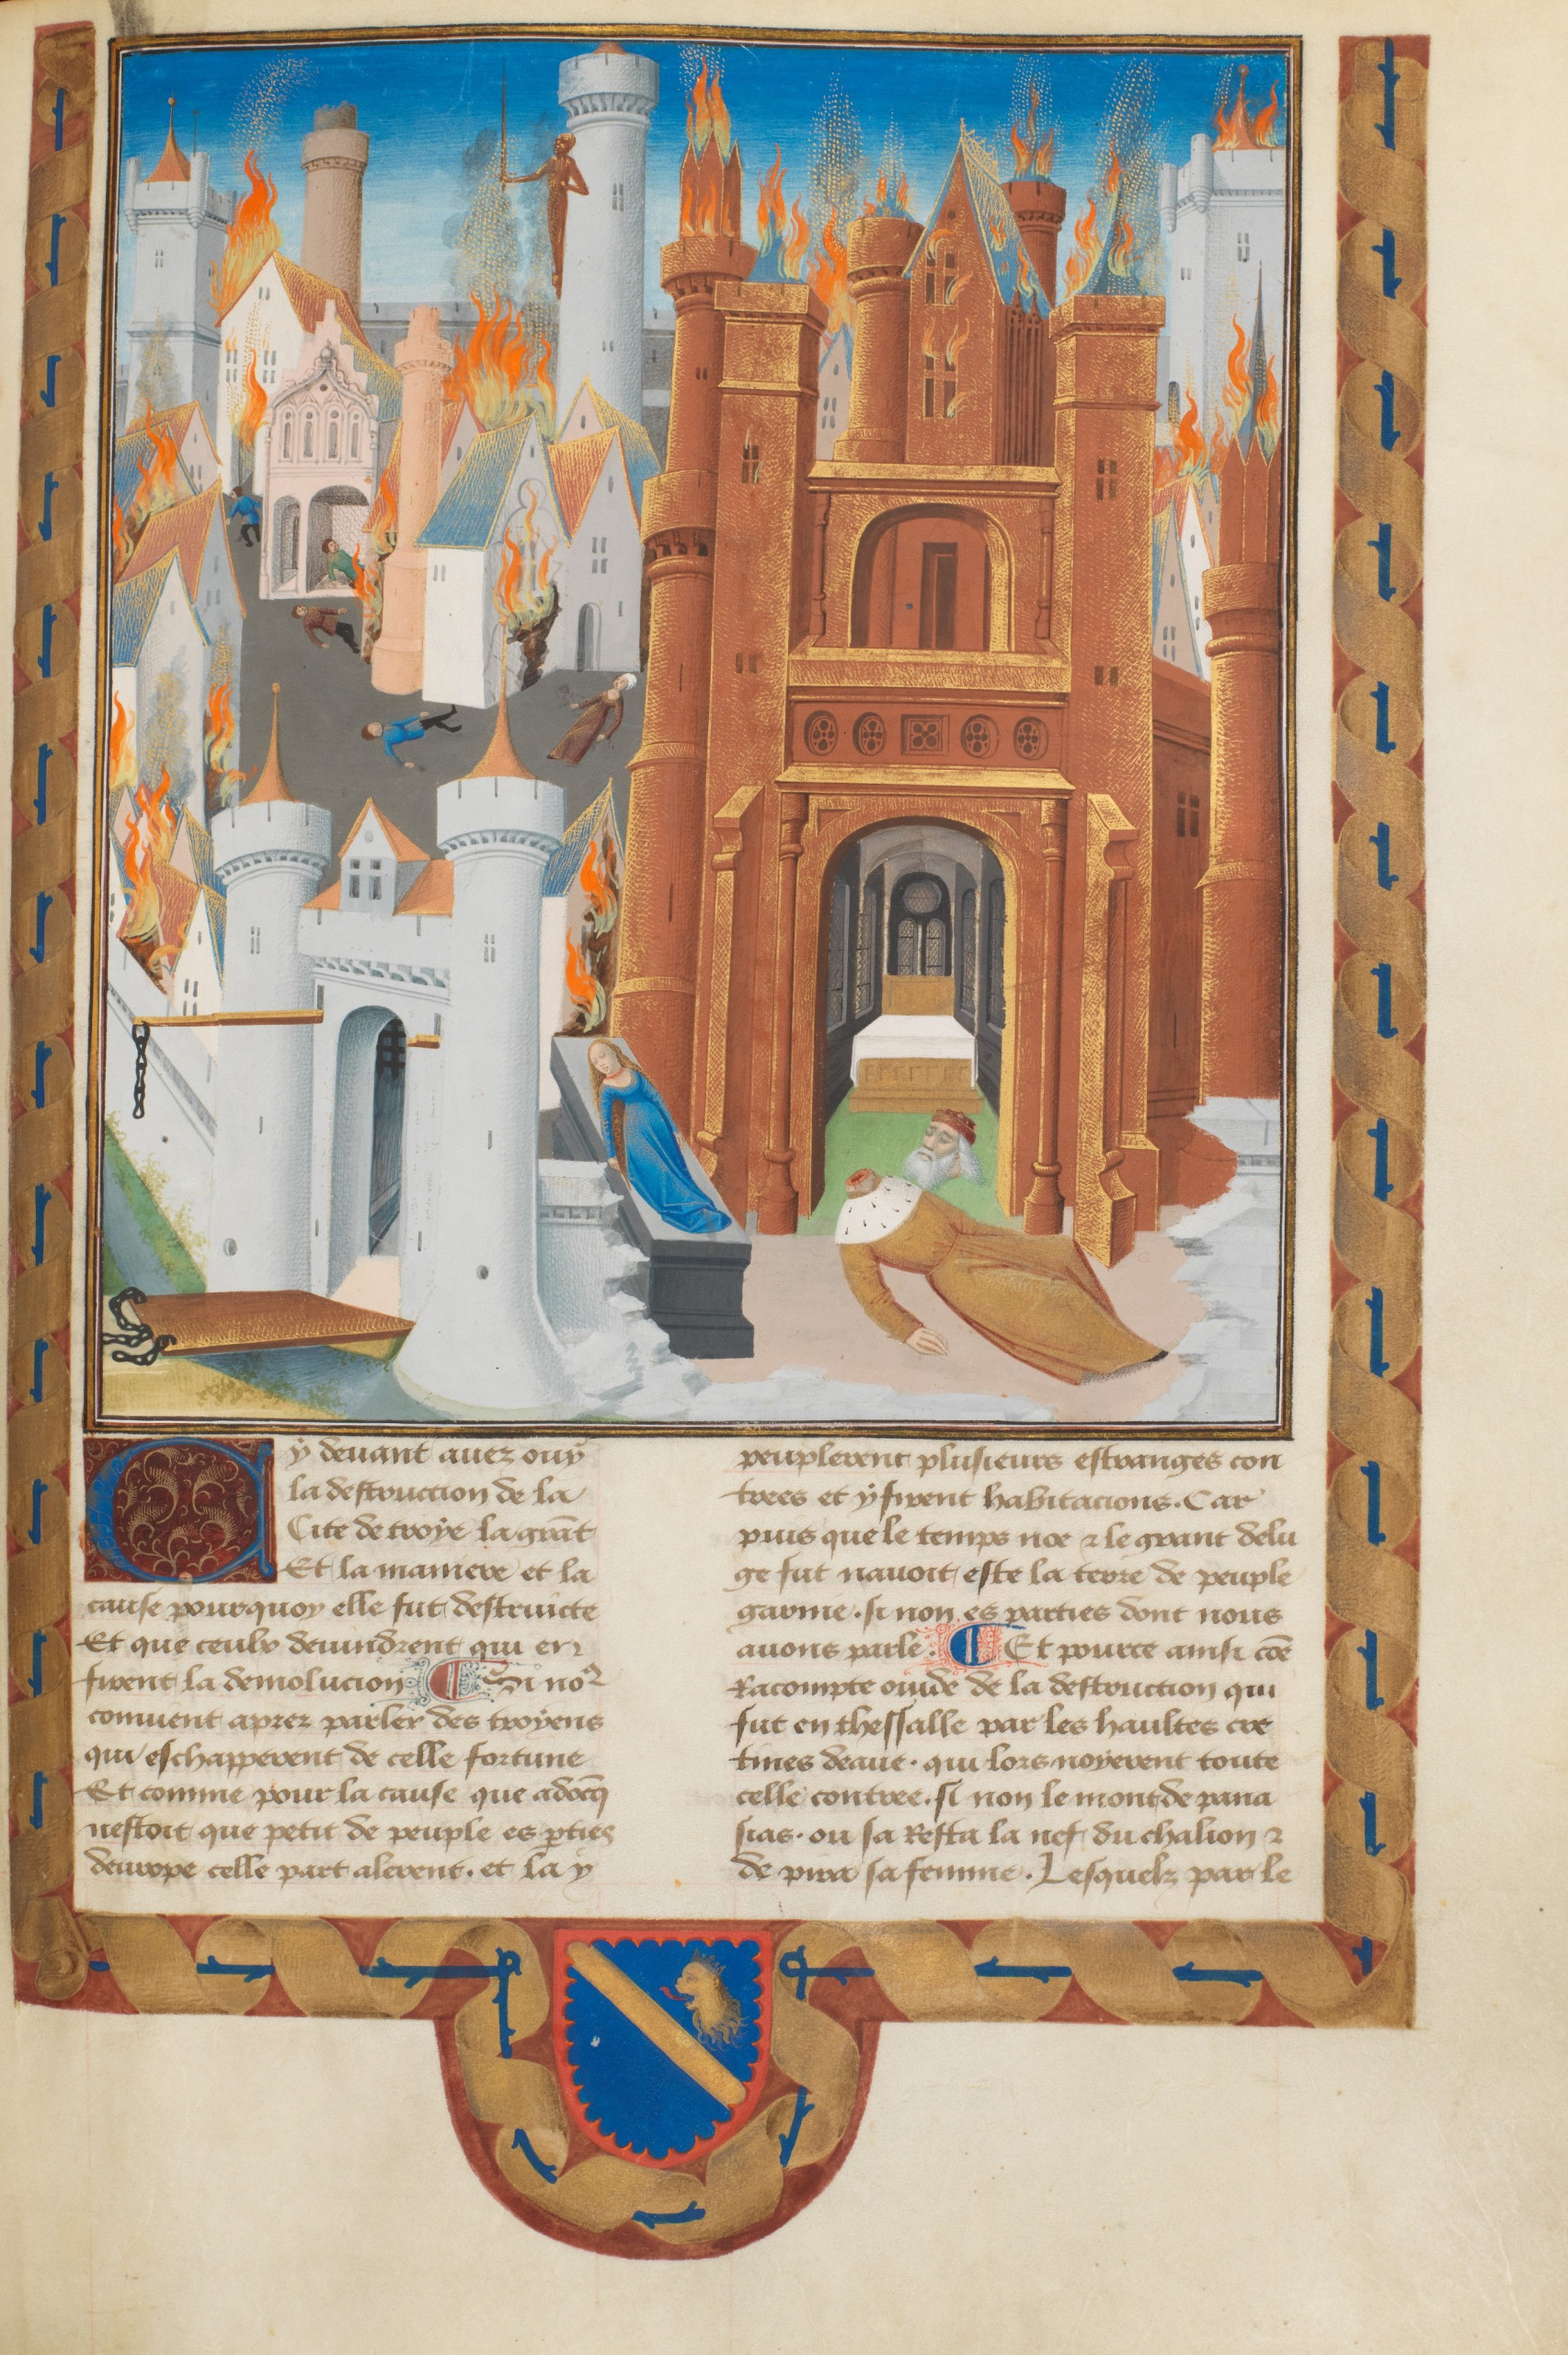 Cy devant avez ouy
la destruction de la
Cite de troye la grāt
Et la maniere et la
cause pourquoy elle fut destruicte
Et que ceulx devindrent qui en
firent la demolucion Si noꝰ
convient aprez parler des troyens
qui eschapperent de celle fortune
Et comme pour la cause que adōcq̄
nestoit que petit de peuple es p̄ties
deurope celle part alerent. et la y
peuplerent plusieurs estranges con
trees et y firent habitacions. Car
puis que le temps noe ⁊ le grant delu
ge fut navoit este la terre de peuple
garnie. si non es parties dont nous
avons parle. Et pource ainsi cōe
Racompte ovide de la destruction qui
fut en thessalle par les haultes cre
tines deaue. qui lors noyerent toute
celle contree. si non le mont de pana
sias. ou sa Resta la nef du chalion ⁊
de pira sa femme. Lesquelz par le